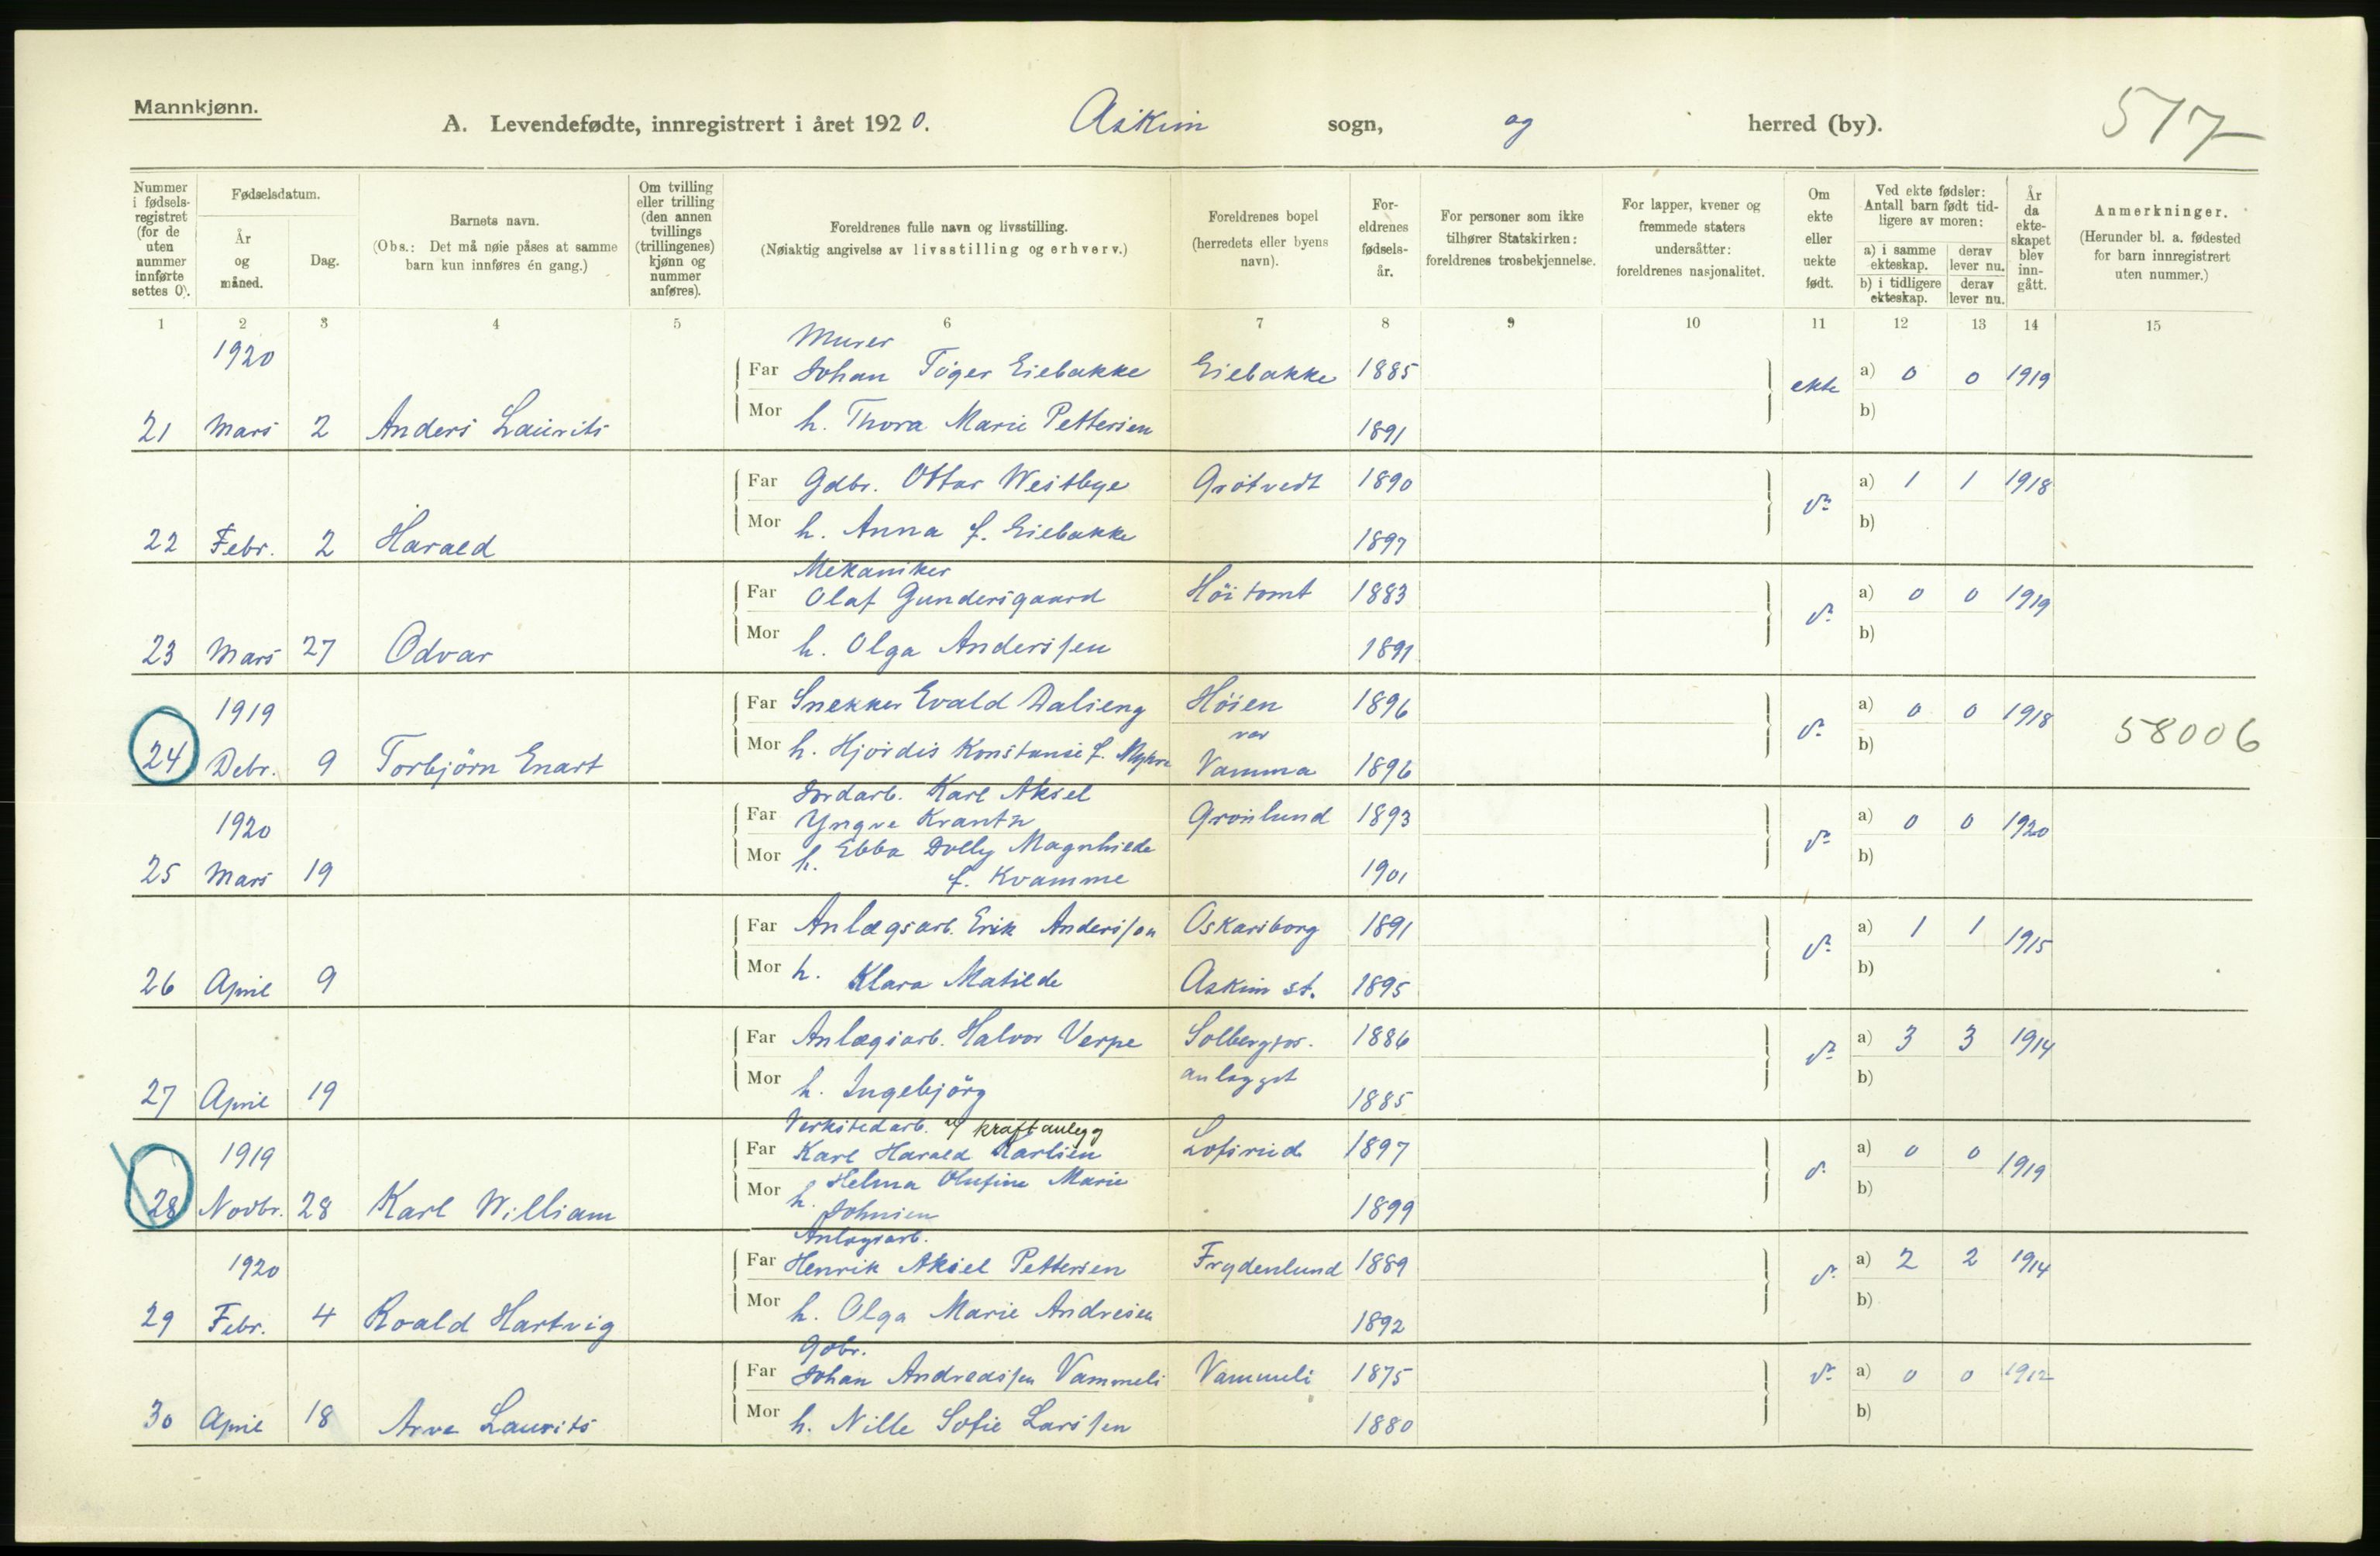 Mannkjønn.
A. Levendefødte, innregistrert i året 1920. Askim sogn, og herred (by).
517
Nummer i fødselsregistret (for de uten nummer innførte settes 0).
Fødselsdatum.
År og måned.
Dag.
Barnets navn.
(Obs.: Det må nøie påses at samme barn kun innføres én gang.)
Om tvilling eller trilling (den annen tvillings (trillingenes) kjønn og nummer anføres).
Foreldrenes fulle navn og livsstilling.
(Nøiaktig angivelse av livsstilling og erhverv.)
Foreldrenes bopel (herredets eller byens navn).
Foreldrenes fødselsår.
For personer som ikke tilhører Statskirken: foreldrenes trosbekjennelse.
For lapper, kvener og fremmede staters undersåtter: foreldrenes nasjonalitet.
Om ekte eller uekte født.
Ved ekte fødsler: Antall barn født tidligere av moren:
a) i samme ekteskap. derav lever nu.
b) i tidligere ekteskap. derav lever nu.
År da ekteskapet blev inngått.
Anmerkninger.
(Herunder bl. a. fødested for barn innregistrert uten nummer.)
1 2 3 4 5 6 7 8 9 10 11 12 13 14 15
1920 Murer
Far Johan Tiger Eiebakke Eiebakke 1885 ekte a) 0 0 1919
21 Mars 2 Anders Laurits Mor h. Thora Marie Pettersen 1891 b)
Far Gdbr. Ottar Westbye Grötvedt 1890 do a) 1 1 1918
22 Febr. 2 Harald Mor h. Anna f. Eiebakke 1897 b)
Mekaniker
Far Olaf Gundersgaard Höitomt 1883 do a) 0 0 1919
23 Mars 27 Odvar Mor h. Olga Anderssen 1891 b)
1919 Far Snekker Evald Dalseng Höien 1896 do a) 0 0 1918 58006
24 Debr. 9 Torbjörn Enart Mor h. Hjördis Konstanse f. Myhre Vamma 1896 b)
Jordarb. Karl Aksel
1920 Far Yngve Krantz Grönlund 1893 do a) 0 0 1920
Mor h. Ebba Dolly Magnhilde b)
25 Mars 19 f. Kvamme 1901
Far Anlægsarb. Erik Andersson Oskarsborg 1891 do a) 1 1 1915
26 April 9 Mor h. Klara Matilde Askim st. 1895 b)
Far Anlægsarb. Halvor Verpe Solbergfos. 1886 do a) 3 3 1914
27 April 19 Mor h. Ingebjörg anlegget 1885 b)
Verkstedarb. v/ kraftanlegg
1919 Far Karl Harald Karlsen Lofsrud 1897 do a) 0 0 1919
Mor h. Helma Olufine Marie b)
28 Novbr. 28 Karl William Johnsen 1899
Anlægsarb.
1920 Far Henrik Aksel Pettersen Frydenlund 1889 do a) 2 2 1914
29 Febr. 4 Roald Hartvig Mor h. Olga Marie Andresen 1892 b)
Gdbr.
Far Johan Andreassen Vammeli Vammeli 1875 do a) 0 0 1912
30 April 18 Arve Laurits Mor h. Nille Sofie Larssen 1880 b)